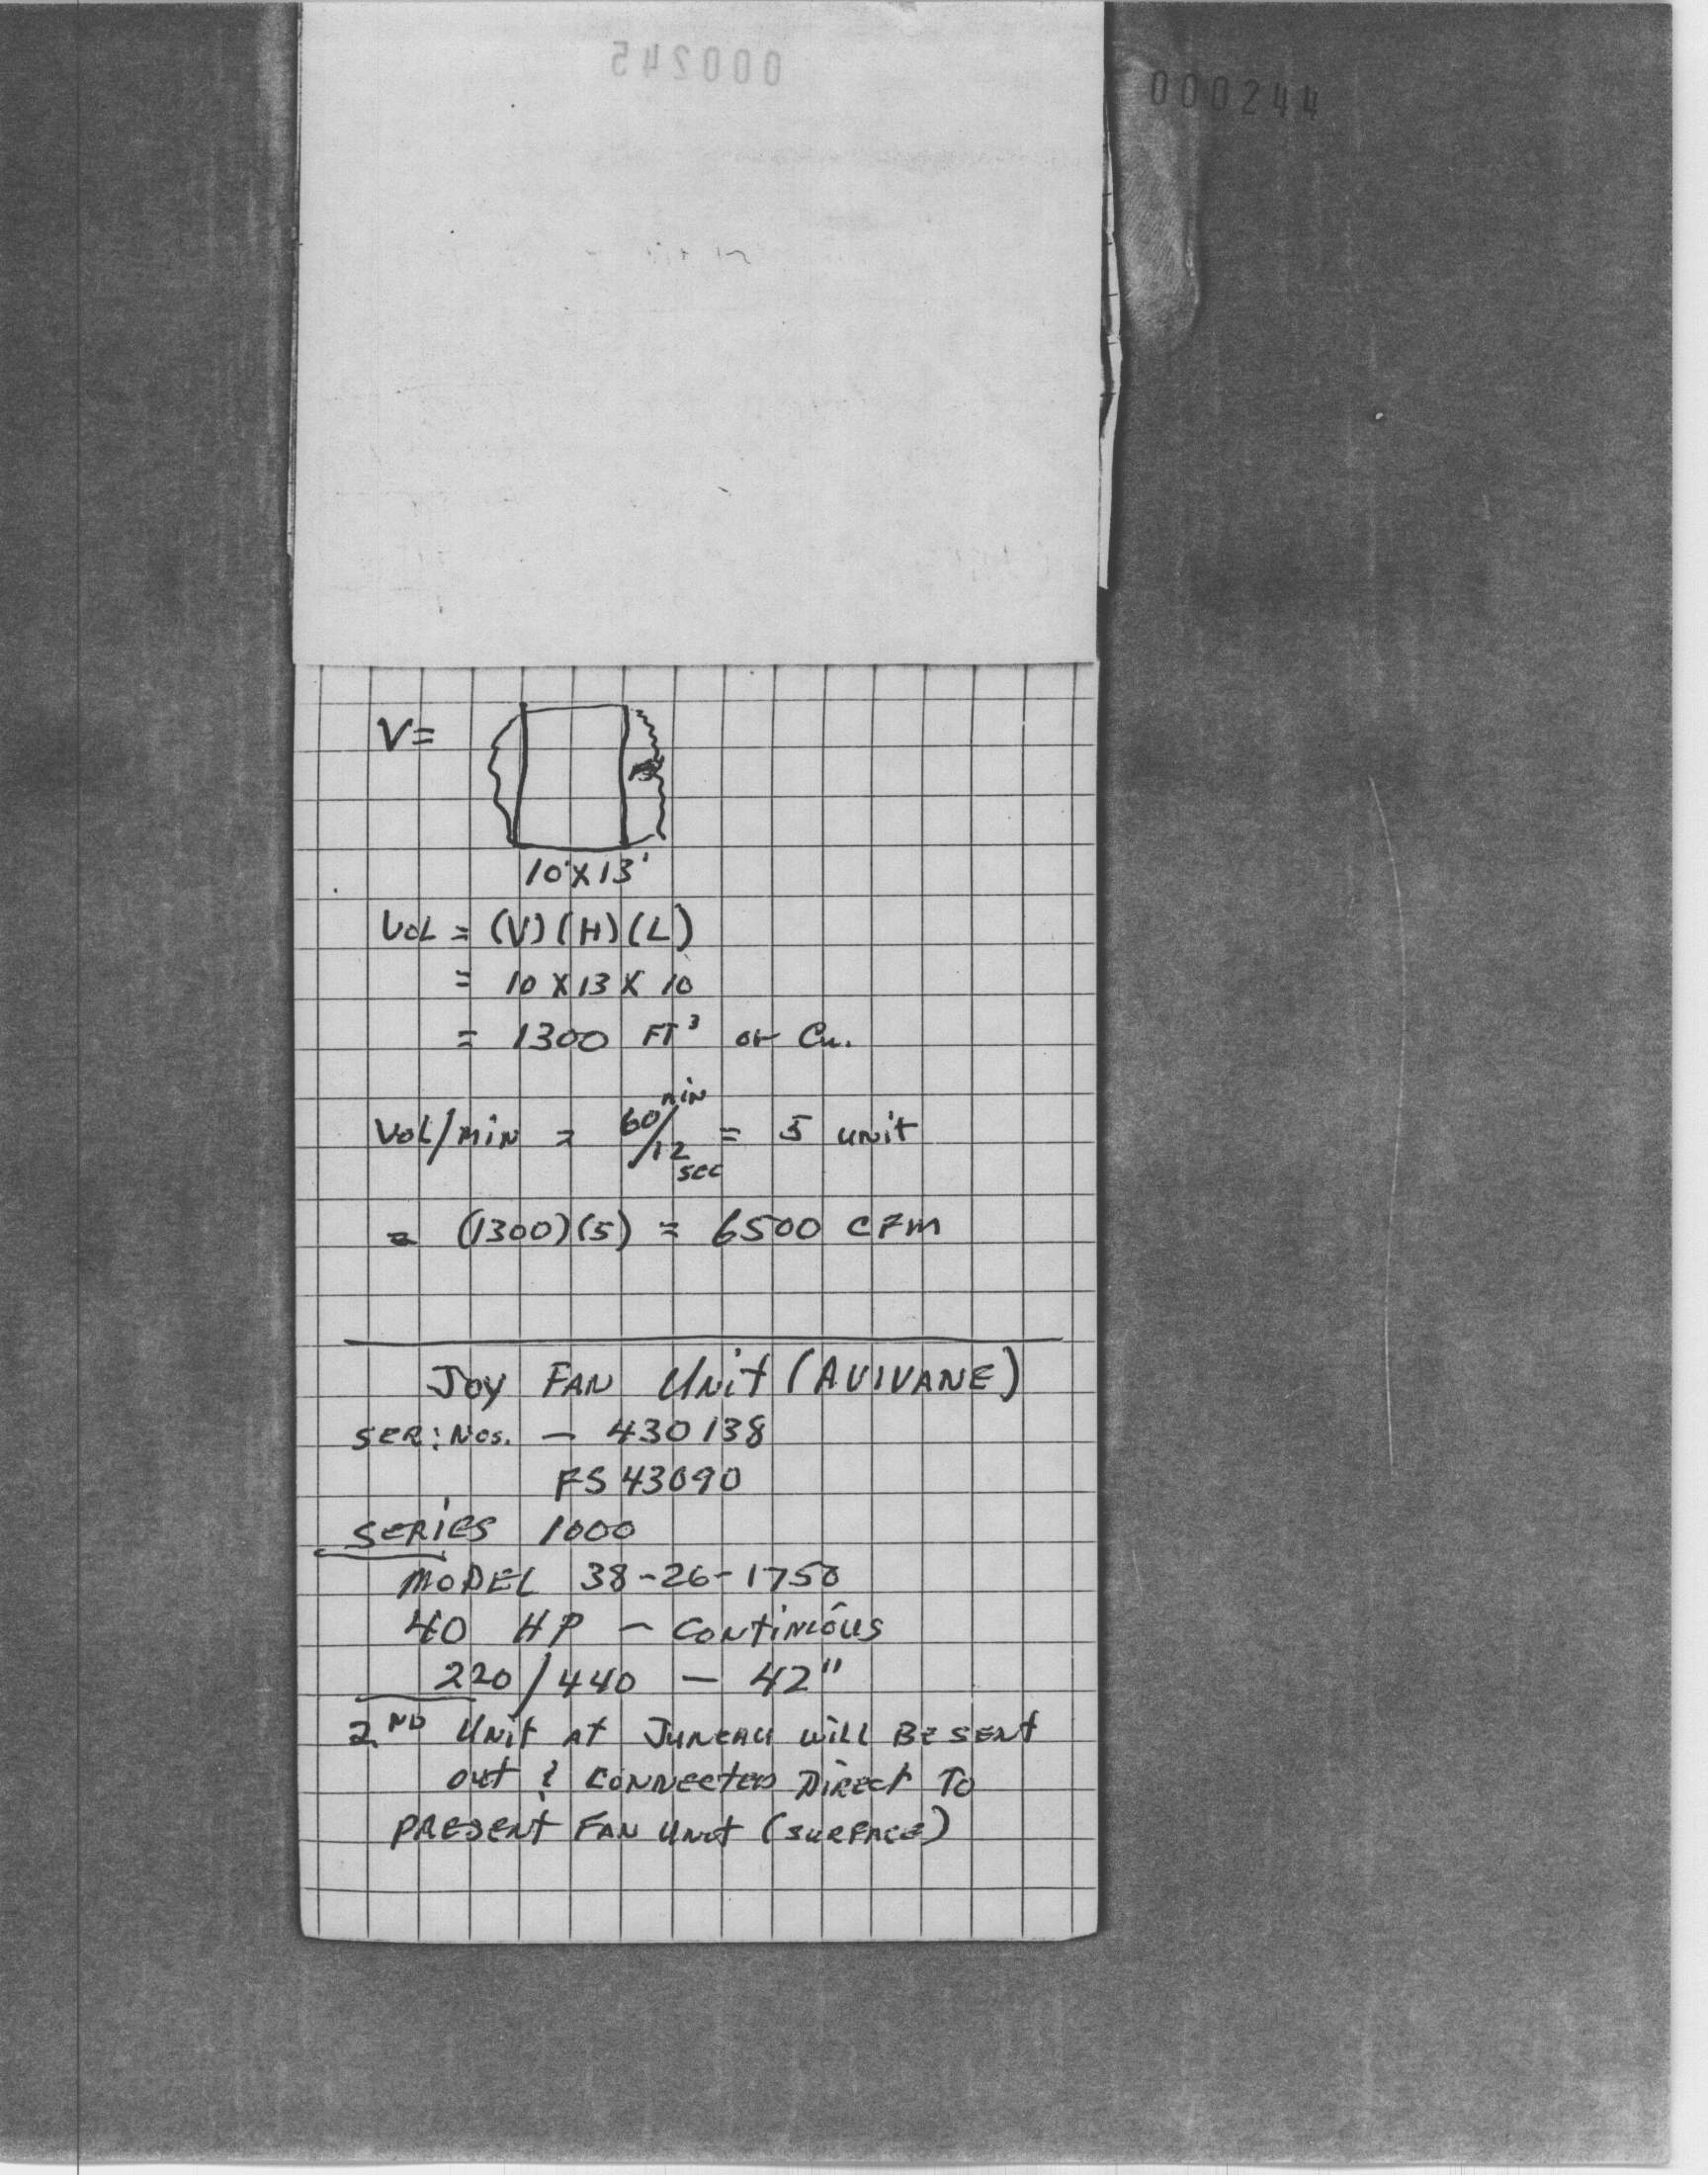 000245
000244
V=
10'X13'
Vol = (V)(H)(L)
= 10 X 13 X 10
= 1300 FT³ or Cu.
Vol/min = 60/12 min sec = 5 unit
= (1300)(5) = 6500 CFM
Joy FAN Unit (AVIVANE)
SER: Nos. - 430138
FS43090
SERIES 1000
MODEL 38-26-1750
40 HP - Continious
220/440 - 42"
2ND Unit at Juneau will BE sent
out & connected Direct To
PRESENT FAN Unit (SURFACE)